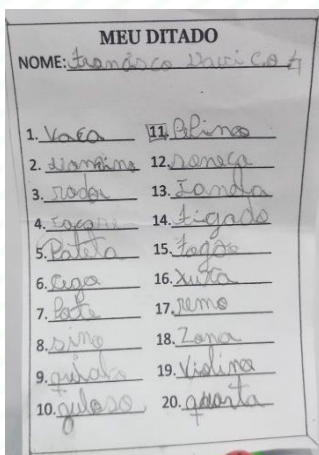 MEU DITADO
NOME: Francisco Davi C.
1. Vaca
2. 
3. rodo
4. 
5. Pateta
6. Cega
7. Pote
8. sino
9. quiabo
10. guloso
11. Pepino
12. soneca
13. Janela
14. figado
15. fogão
16. Xuxa
17. remo
18. Zona
19. Violino
20. quarta